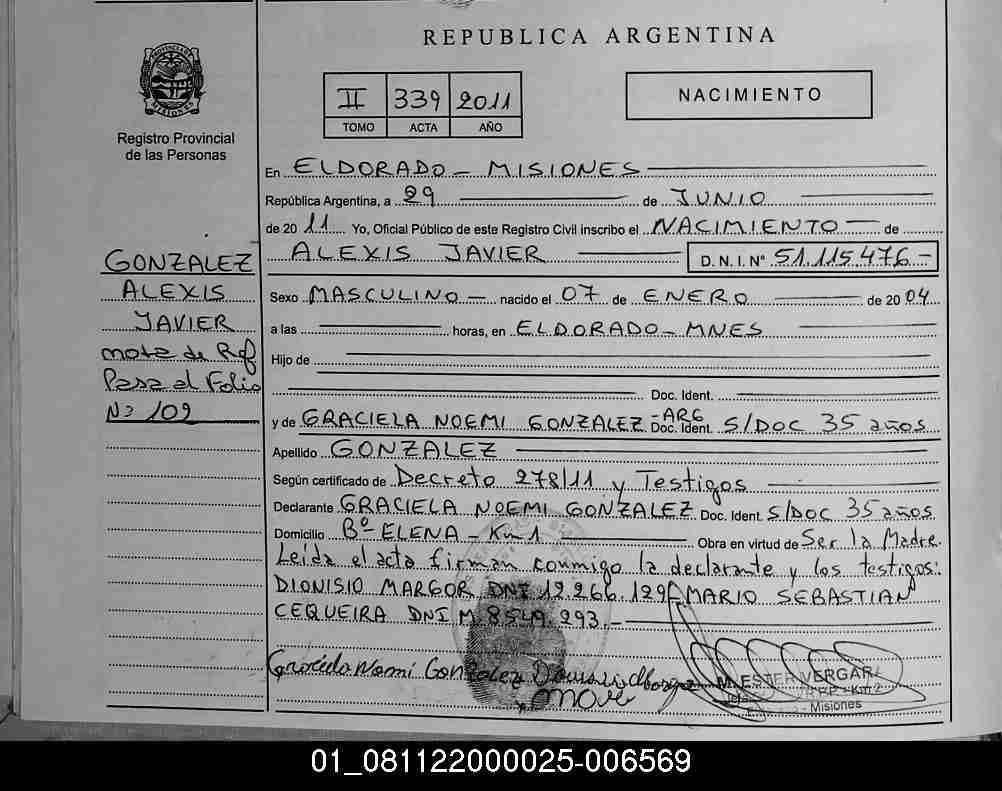 REPUBLICA ARGENTINA
PROVINCIA DE MISIONES
Registro Provincial
de las Personas
II 339 2011
TOMO ACTA AÑO
NACIMIENTO
En ELDORADO - MISIONES
República Argentina, a 29 de JUNIO
de 20 11 Yo, Oficial Público de este Registro Civil inscribo el NACIMIENTO de
ALEXIS JAVIER D.N.I. Nº 51.115.476-
Sexo MASCULINO - nacido el 07 de ENERO de 20 04
a las horas, en ELDORADO - MNES
Hijo de
Doc. Ident.
y de GRACIELA NOEMI GONZALEZ - ARG Doc. Ident. S/DOC 35 años
Apellido GONZALEZ
Según certificado de Decreto 278/11 y Testigos
Declarante GRACIELA NOEMI GONZALEZ Doc. Ident. S/DOC 35 años
Domicilio Bº ELENA - Km 1 Obra en virtud de Ser la Madre.
Leída el acta firman conmigo la declarante y los testigos:
DIONISIO MARGOR DNI 12.266.129 MARIO SEBASTIAN
CEQUEIRA DNI M 8.549.293.-
Noemi Gonzalez
M. ESTER VERGARA
Km 2
Misiones
GONZALEZ
ALEXIS
JAVIER
nota de Ref
Pasa al Folio
Nº 109
01_081122000025-006569